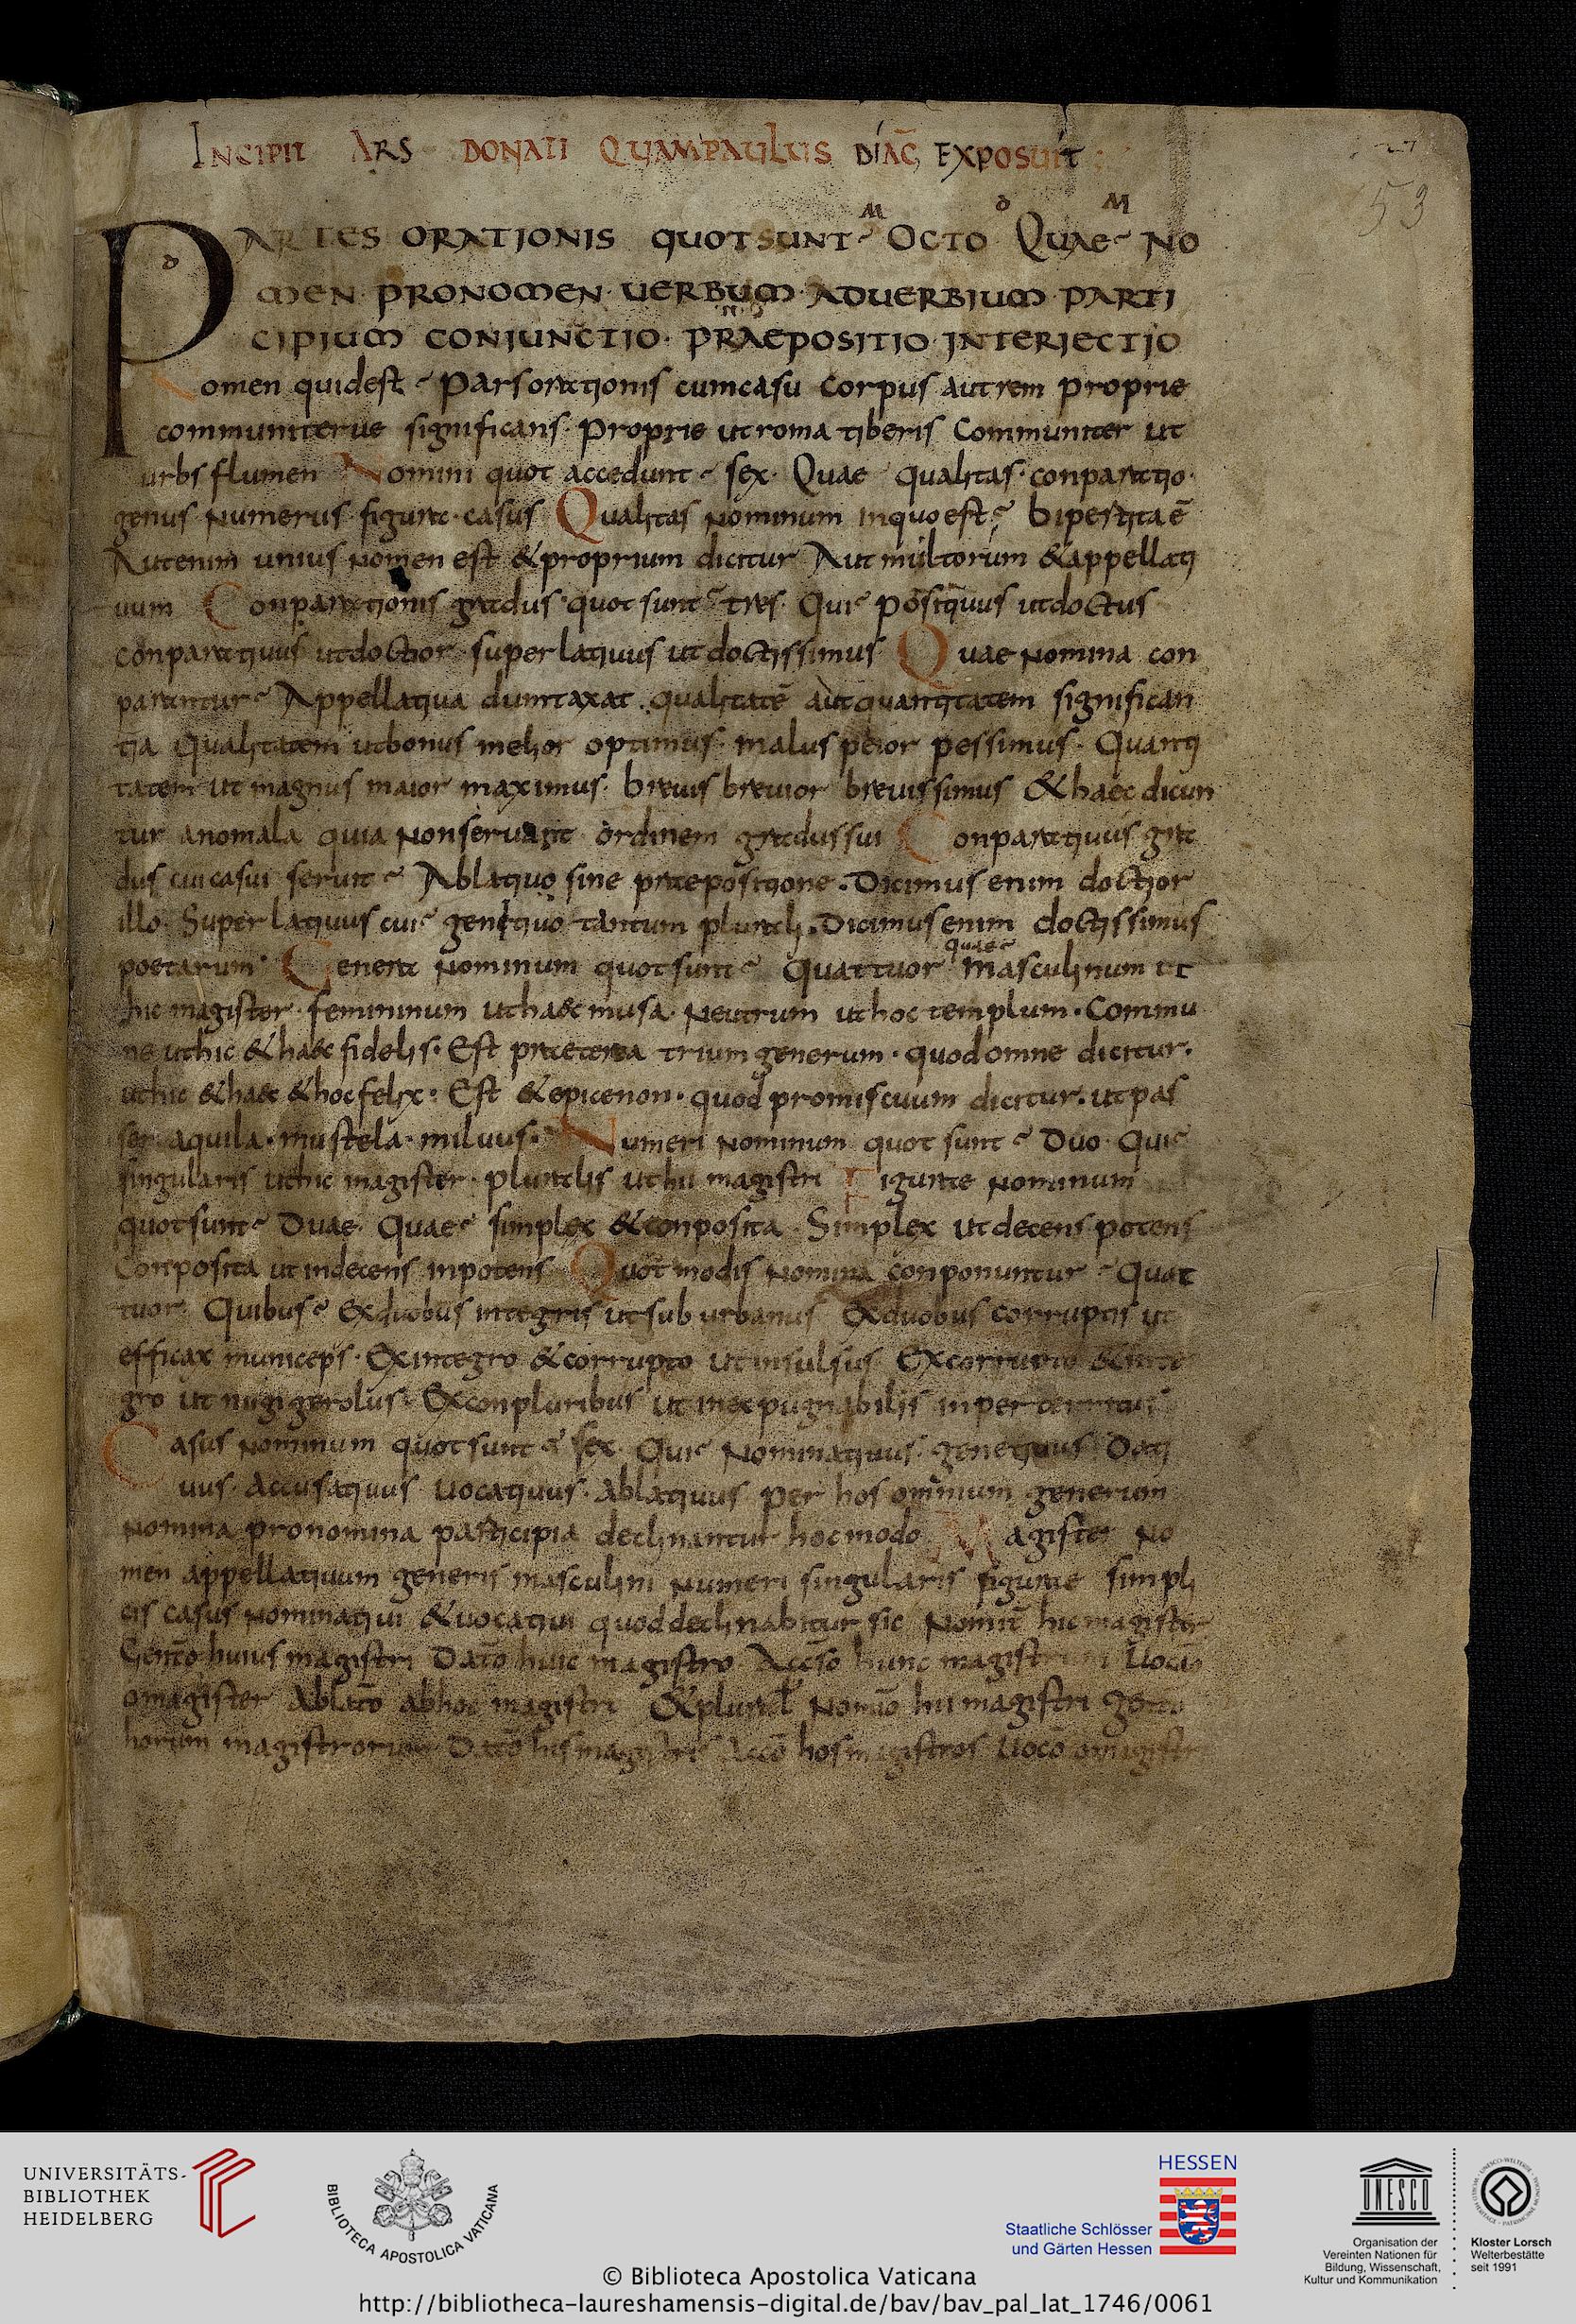 INCIPIT ARS DONATI QUAM PAULUS DIAC̄ EXPOSUIT
53
PARTES ORATIONIS QUOT SUNT OCTO QUAE NO
MEN· PRONOMEN· UERBUM· ADUERBIUM· PARTI
CIPIUM CONIUNCTIO· PRAEPOSITIO· INTERIECTIO
Nomen quid est Pars orationis cum casu corpus aut rem proprie
communiterue significans· Proprie ut roma tiberis communiter ut
urbs flumen Nomini quot accedunt sex· Quae qualitas· conparatio·
genus· numerus· figura· casus Qualitas nominum in quo est bipertita ē
Aut enim unius nomen est & proprium dicitur Aut multorum & appellati
uum Conparationis gradus quot sunt tres· Qui positiuus ut doctus
conparatiuus ut doctior· superlatiuus ut doctissimus Quae nomina con
parantur Appellatiua dumtaxat qualitatē aut quantitatem significan
tia Qualitatem ut bonus melior optimus· malus peior pessimus· Quanti
tatem ut magnus maior maximus· breuis breuior breuissimus & haec dicun
tur anomala quia non seruant ordinem gradus sui Conparatiuus gra
dus cui casui seruit Ablatiuo sine praepositione· Dicimus enim doctior
illo· Superlatiuus cui genitiuo tantum plurali· Dicimus enim doctissimus
poetarum· Genera nominum quot sunt Quattuor quae masculinum ut
hic magister· femininum ut haec musa· Neutrum ut hoc templum· Commu
ne ut hic & haec fidelis· Est praeterea trium generum· quod omne dicitur·
ut hic & haec & hoc felix· Est & epicenon· quod promiscuum dicitur· ut pas
ser aquila· mustela· miluus· Numeri nominum quot sunt Duo· Qui
singularis ut hic magister· pluralis ut hii magistri Figurae nominum
quot sunt Duae· Quae simplex & conposita· Simplex ut decens potens
Conposita ut indecens inpotens Quot modis nomina conponuntur Quat
tuor· Quibus Ex duobus integris ut sub urbanus Ex duobus corruptis ut
efficax municeps· Ex integro & corrupto ut insulsus Ex corrupto & inte
gro ut nugigerolus· Ex conpluribus ut inexpugnabilis inperterritus
Casus nominum quot sunt sex· Qui Nominatiuus· genetiuus Dati
uus· Accusatiuus Uocatiuus· Ablatiuus per hos omnium generum
nomina pronomina participia declinantur hoc modo Magister No
men appellatiuum generis masculini numeri singularis figurae simpli
cis casus nominatiui & uocatiui quod declinabitur sic Nomiñ hic magister
Genīto huius magistri Datō huic magistro Accsō hunc magistrum Uocatō
o magister Ablatō ab hoc magistri & plural Nomīo hii magistri Getō
horum magistrorum Datō his magistris Accō hos magistros Uocō o magistri
UNIVERSITÄTS-
BIBLIOTHEK
HEIDELBERG
BIBLIOTECA APOSTOLICA VATICANA
HESSEN
Staatliche Schlösser
und Gärten Hessen
UNESCO
Organisation der
Vereinten Nationen für
Bildung, Wissenschaft,
Kultur und Kommunikation
Kloster Lorsch
Welterbestätte
seit 1991
© Biblioteca Apostolica Vaticana
http://bibliotheca-laureshamensis-digital.de/bav/bav_pal_lat_1746/0061